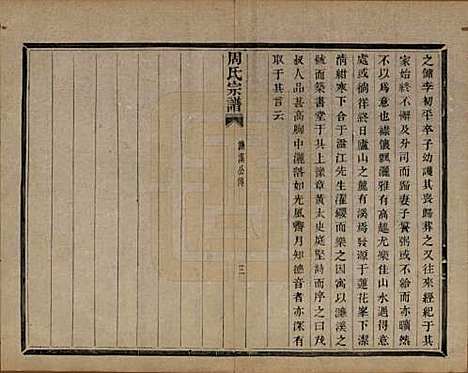 之傭李初平卒子幼護其喪歸葬之又往來經紀于其
家始終不懈及分司而歸妻子饘粥或不給而亦曠然
不以為意也襟懷飄灑雅有高趣尤樂佳山水遇適意
處或徜徉終日廬山之麓有溪焉發源于蓮花峯下潔
清紺寒下合于湓江先生濯纓而樂之因寓以濂溪之
號而築書堂于其上豫章黃太史庭堅詩而序之曰茂
叔人品甚高胸中灑落如光風霽月知德音者亦深有
取于其言云
周氏宗譜
濂溪公傳
三